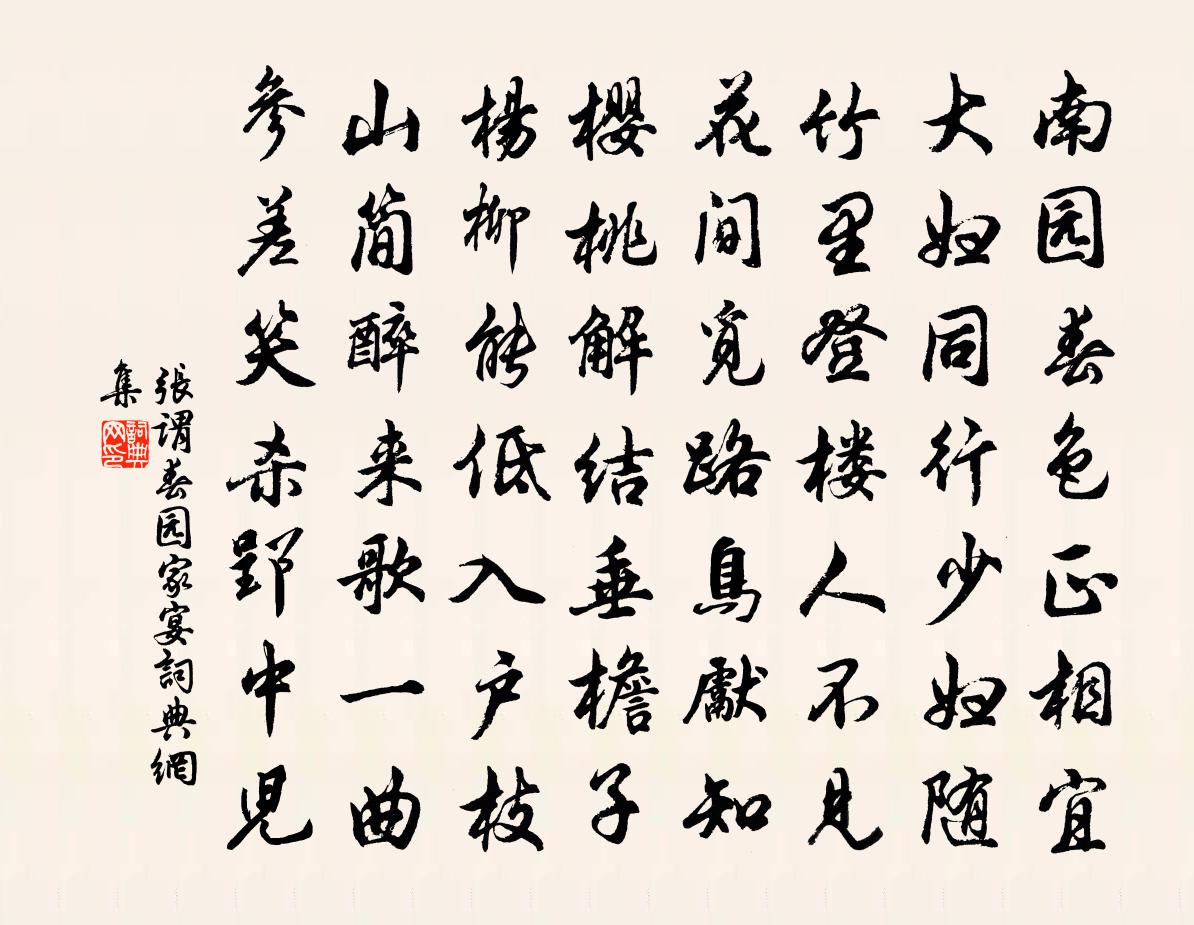 南园春色正相宜
大妇同行少妇随
竹里登楼人不见
花间觅路鳥獻知
櫻桃解结垂檐子
楊柳能低入户枝
山简醉来歌一曲
參差笑杀郢中児
張谓春园家宴詞典網
集
詞典网印